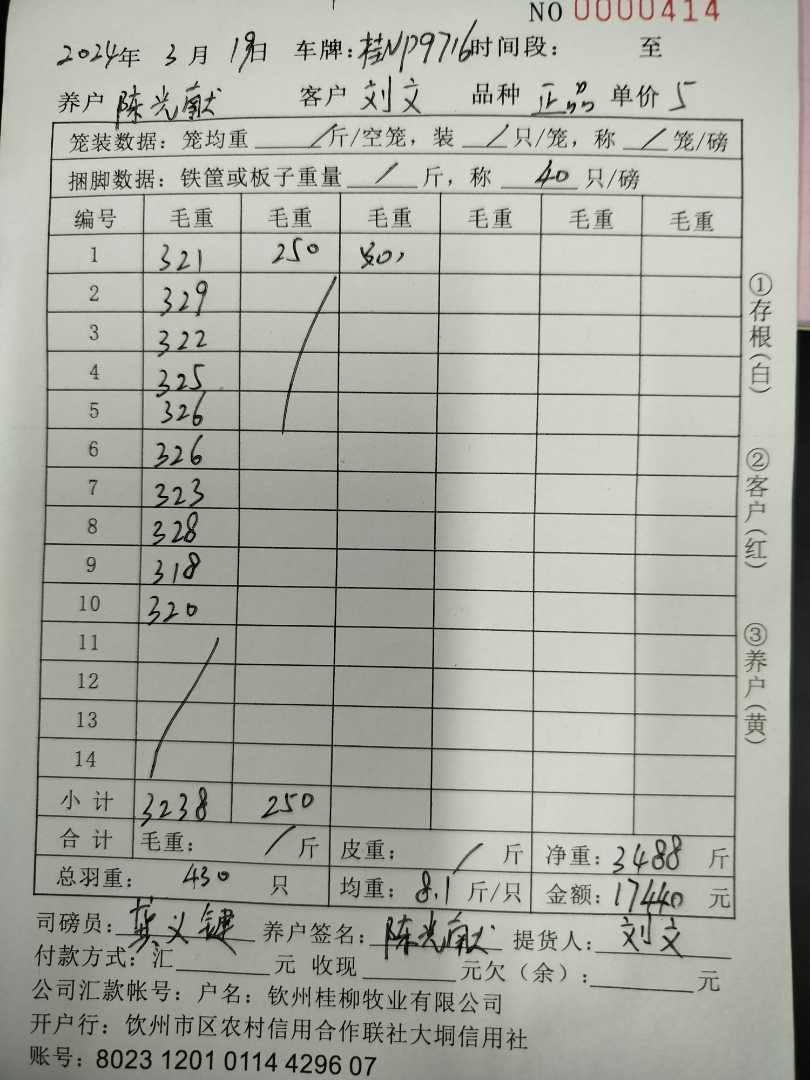 NO 0000414
2024年 3月 19日 车牌:桂NP9716时间段: 至
养户 陈光献 客户 刘文 品种 正品 单价 5
笼装数据:笼均重 / 斤/空笼,装 / 只/笼,称 / 笼/磅
捆脚数据:铁筐或板子重量 / 斤,称 40 只/磅
编号 毛重 毛重 毛重 毛重 毛重 毛重
1 321 250
2 329
3 322
4 325
5 326
6 326
7 323
8 328
9 318
10 320
11
12
13
14
小计 3238 250
合计 毛重: / 斤 皮重: / 斤 净重:3488 斤
总羽重: 430 只 均重: 8.1 斤/只 金额:17440 元
司磅员: 义键 养户签名: 陈光献 提货人: 刘文
付款方式:汇 元 收现 元欠(余): 元
公司汇款帐号:户名:钦州桂柳牧业有限公司
开户行:钦州市区农村信用合作联社大垌信用社
账号:8023 1201 0114 4296 07
①存根(白)
②客户(红)
③养户(黄)